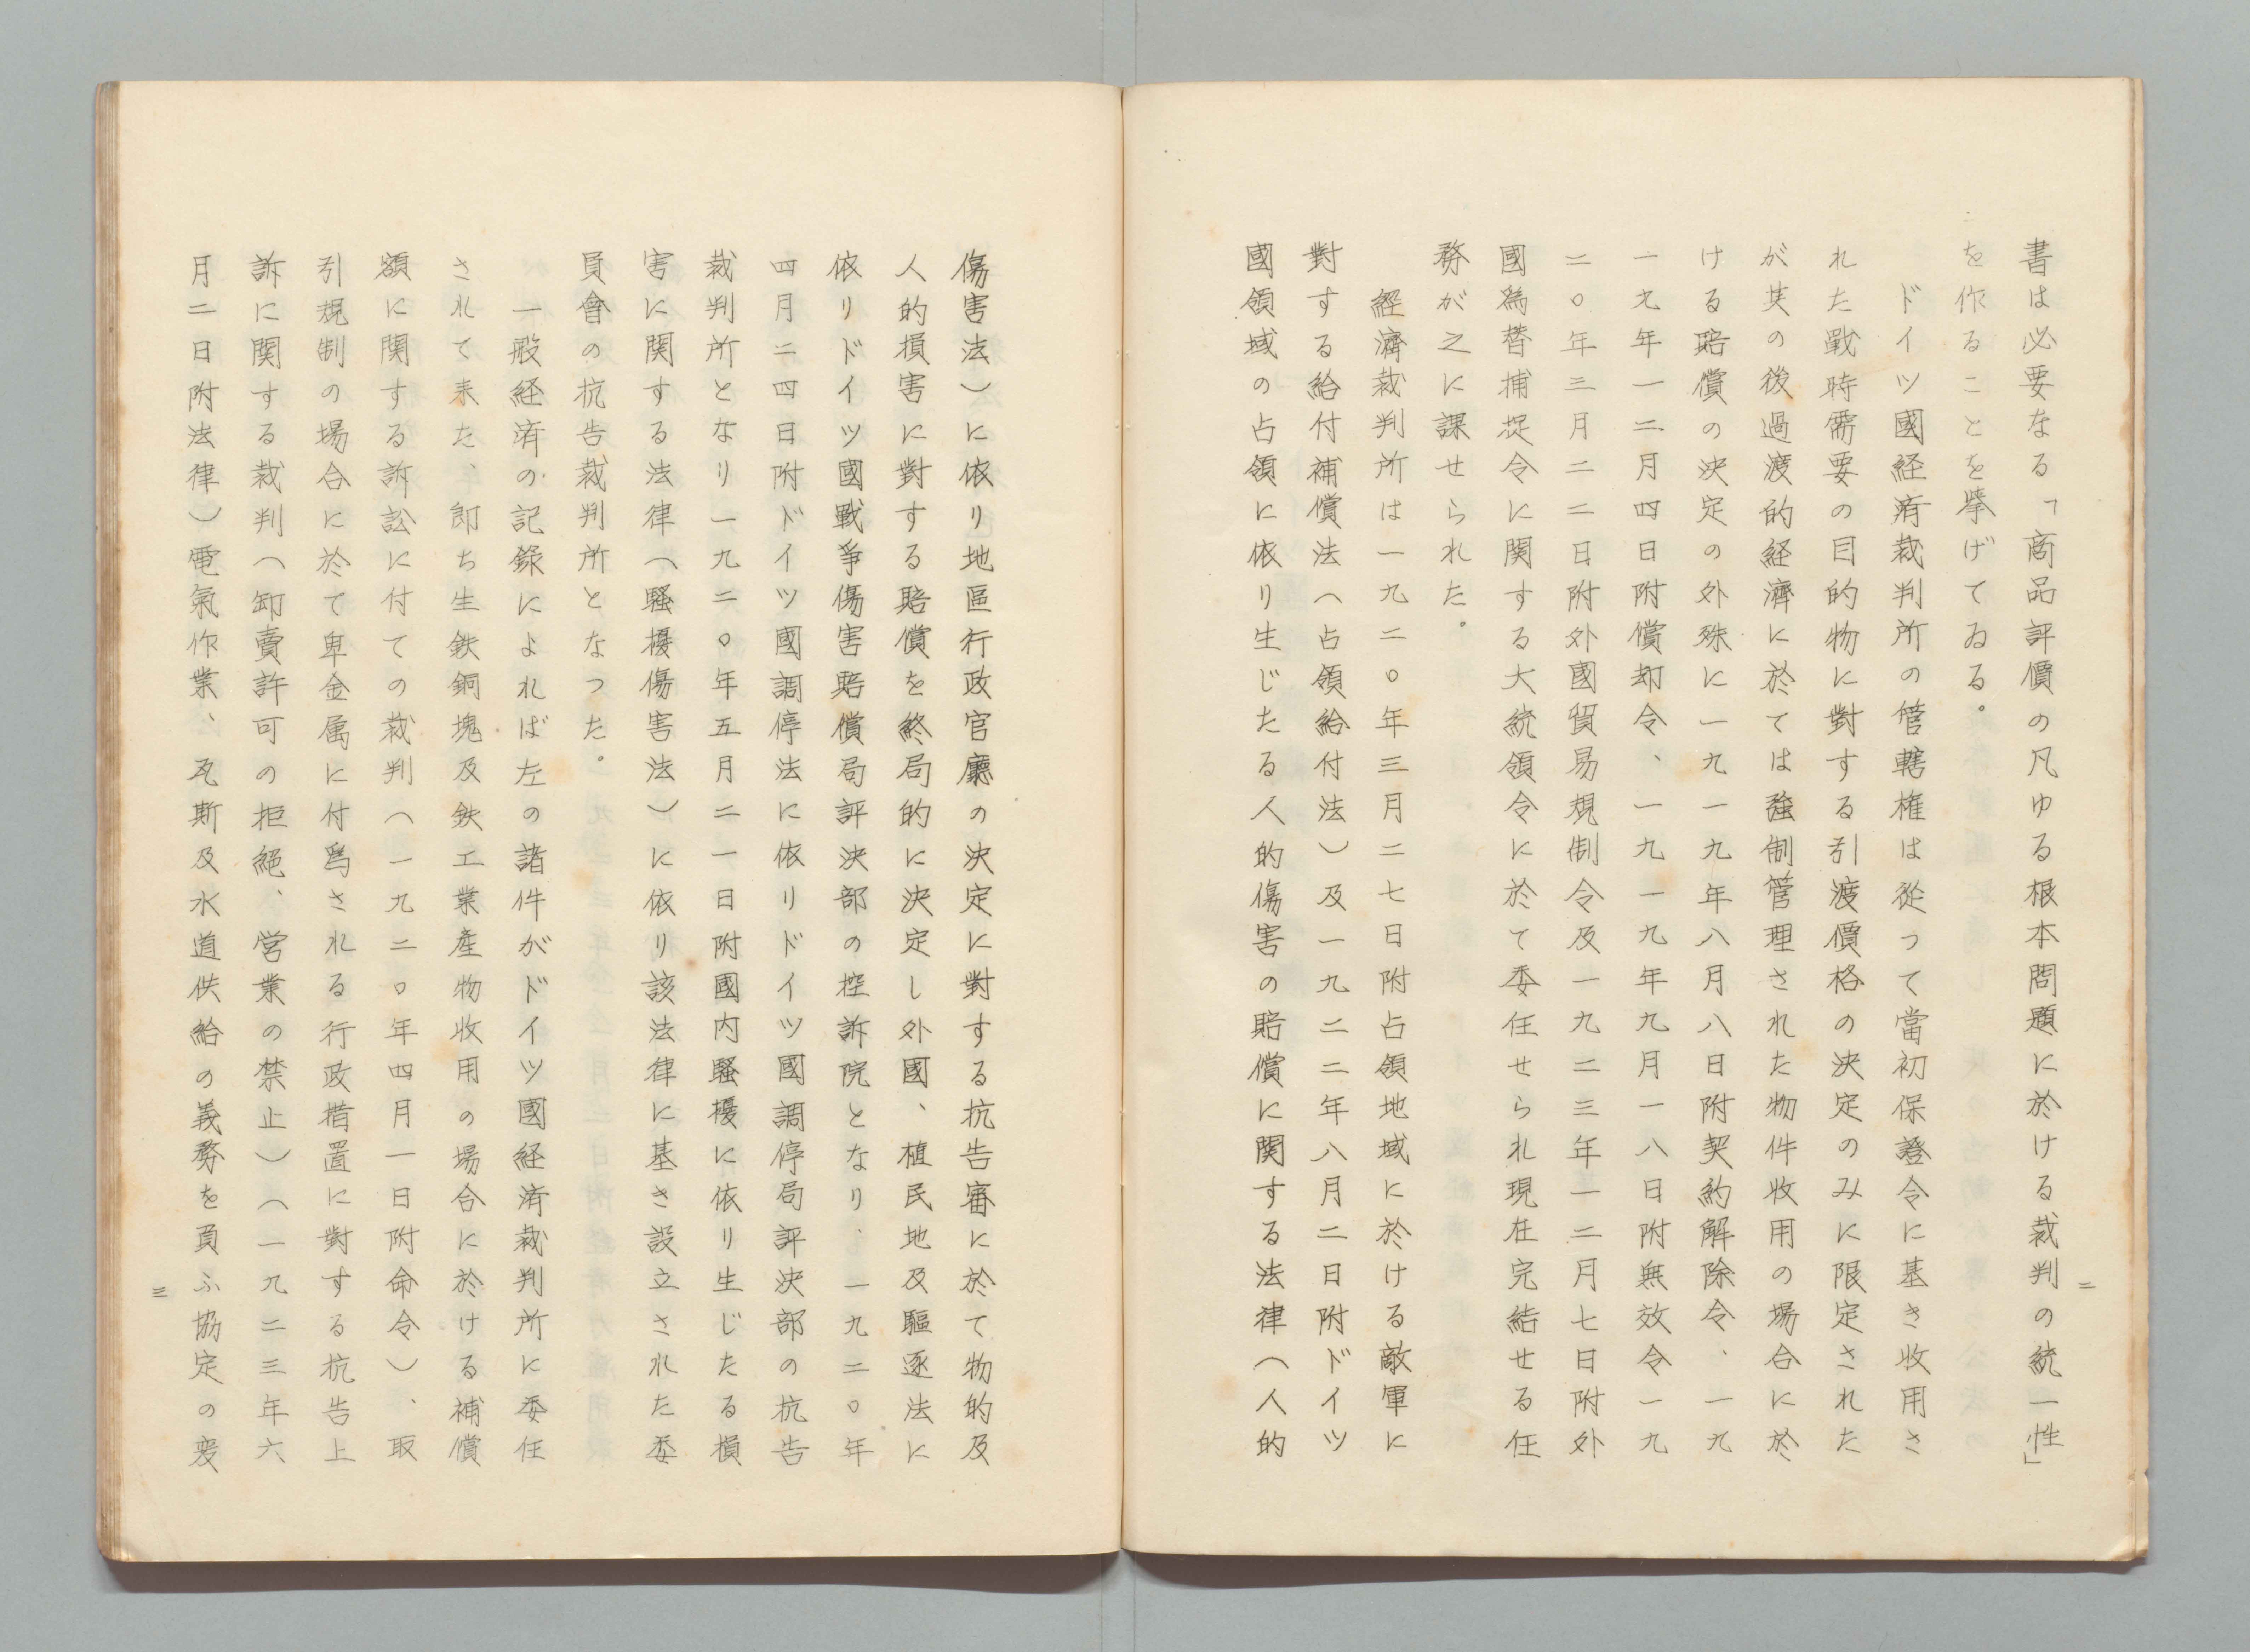 書は必要なる「商品評價の凡ゆる根本問題に於ける裁判の統一性」
を作ることを擧げてゐる。
ドイツ國経済裁判所の管轄権は從って當初保證令に基き收用さ
れた戰時需要の目的物に對する引渡價格の決定のみに限定された
が其の後過渡的経濟に於ては強制管理された物件收用の場合に於
ける賠償の決定の外殊に一九一九年八月八日附契約解除令、一九
一九年一二月四日附償却令、一九一九年九月一八日附無效令一九
二〇年三月二二日附外國貿易規制令及一九二三年一二月七日附外
國為替捕捉令に関する大統領令に於て委任せられ現在完結せる任
務が之に課せられた。
經濟裁判所は一九二〇年三月二七日附占領地域に於ける敵軍に
對する給付補償法（占領給付法）及一九二二年八月二日附ドイツ
國領域の占領に依り生じたる人的傷害の賠償に関する法律（人的
二
傷害法）に依り地區行政官廳の決定に對する抗告審に於て物的及
人的損害に對する賠償を終局的に決定し外國、植民地及驅逐法に
依りドイツ國戰爭傷害賠償局評決部の控訴院となり、一九二〇年
四月二四日附ドイツ國調停法に依りドイツ國調停局評決部の抗告
裁判所となり一九二〇年五月二一日附國内騷擾に依り生じたる損
害に関する法律（騷擾傷害法）に依り該法律に基き設立された委
員會の抗告裁判所となつた。
一般経済の記録によれば左の諸件がドイツ國経済裁判所に委任
されて来た、即ち生鉄銅塊及鉄工業産物收用の場合に於ける補償
額に関する訴訟に付ての裁判（一九二〇年四月一日附命令）、取
引規制の場合に於て卑金属に付爲される行政措置に對する抗告上
訴に関する裁判（卸賣許可の拒絕、営業の禁止）（一九二三年六
月二日附法律）電氣作業、瓦斯及水道供給の義務を負ふ協定の変
三